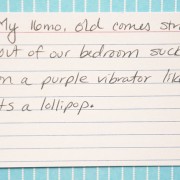 My 16mo. old comes str
out of our bedroom suck
on a purple vibrator like
its a lollipop.